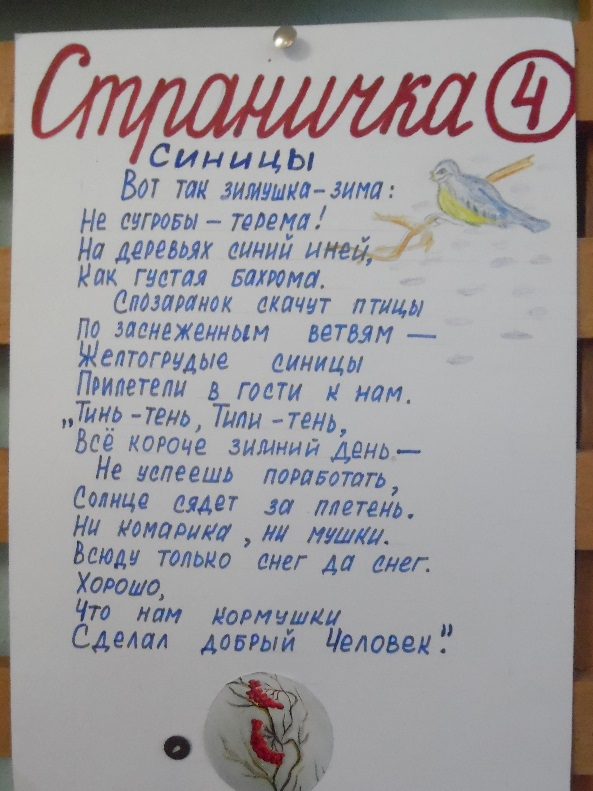 Страничка 4
Синицы
Вот так зимушка-зима:
Не сугробы – терема!
На деревьях синий иней,
Как густая бахрома.
Спозаранок скачут птицы
По заснеженным ветвям —
Желтогрудые синицы
Прилетели в гости к нам.
„Тинь-тень, Тили-тень,
Всё короче зимний день —
Не успеешь поработать,
Солнце сядет за плетень.
Ни комарика, ни мушки.
Всюду только снег да снег.
Хорошо,
Что нам кормушки
Сделал добрый Человек."